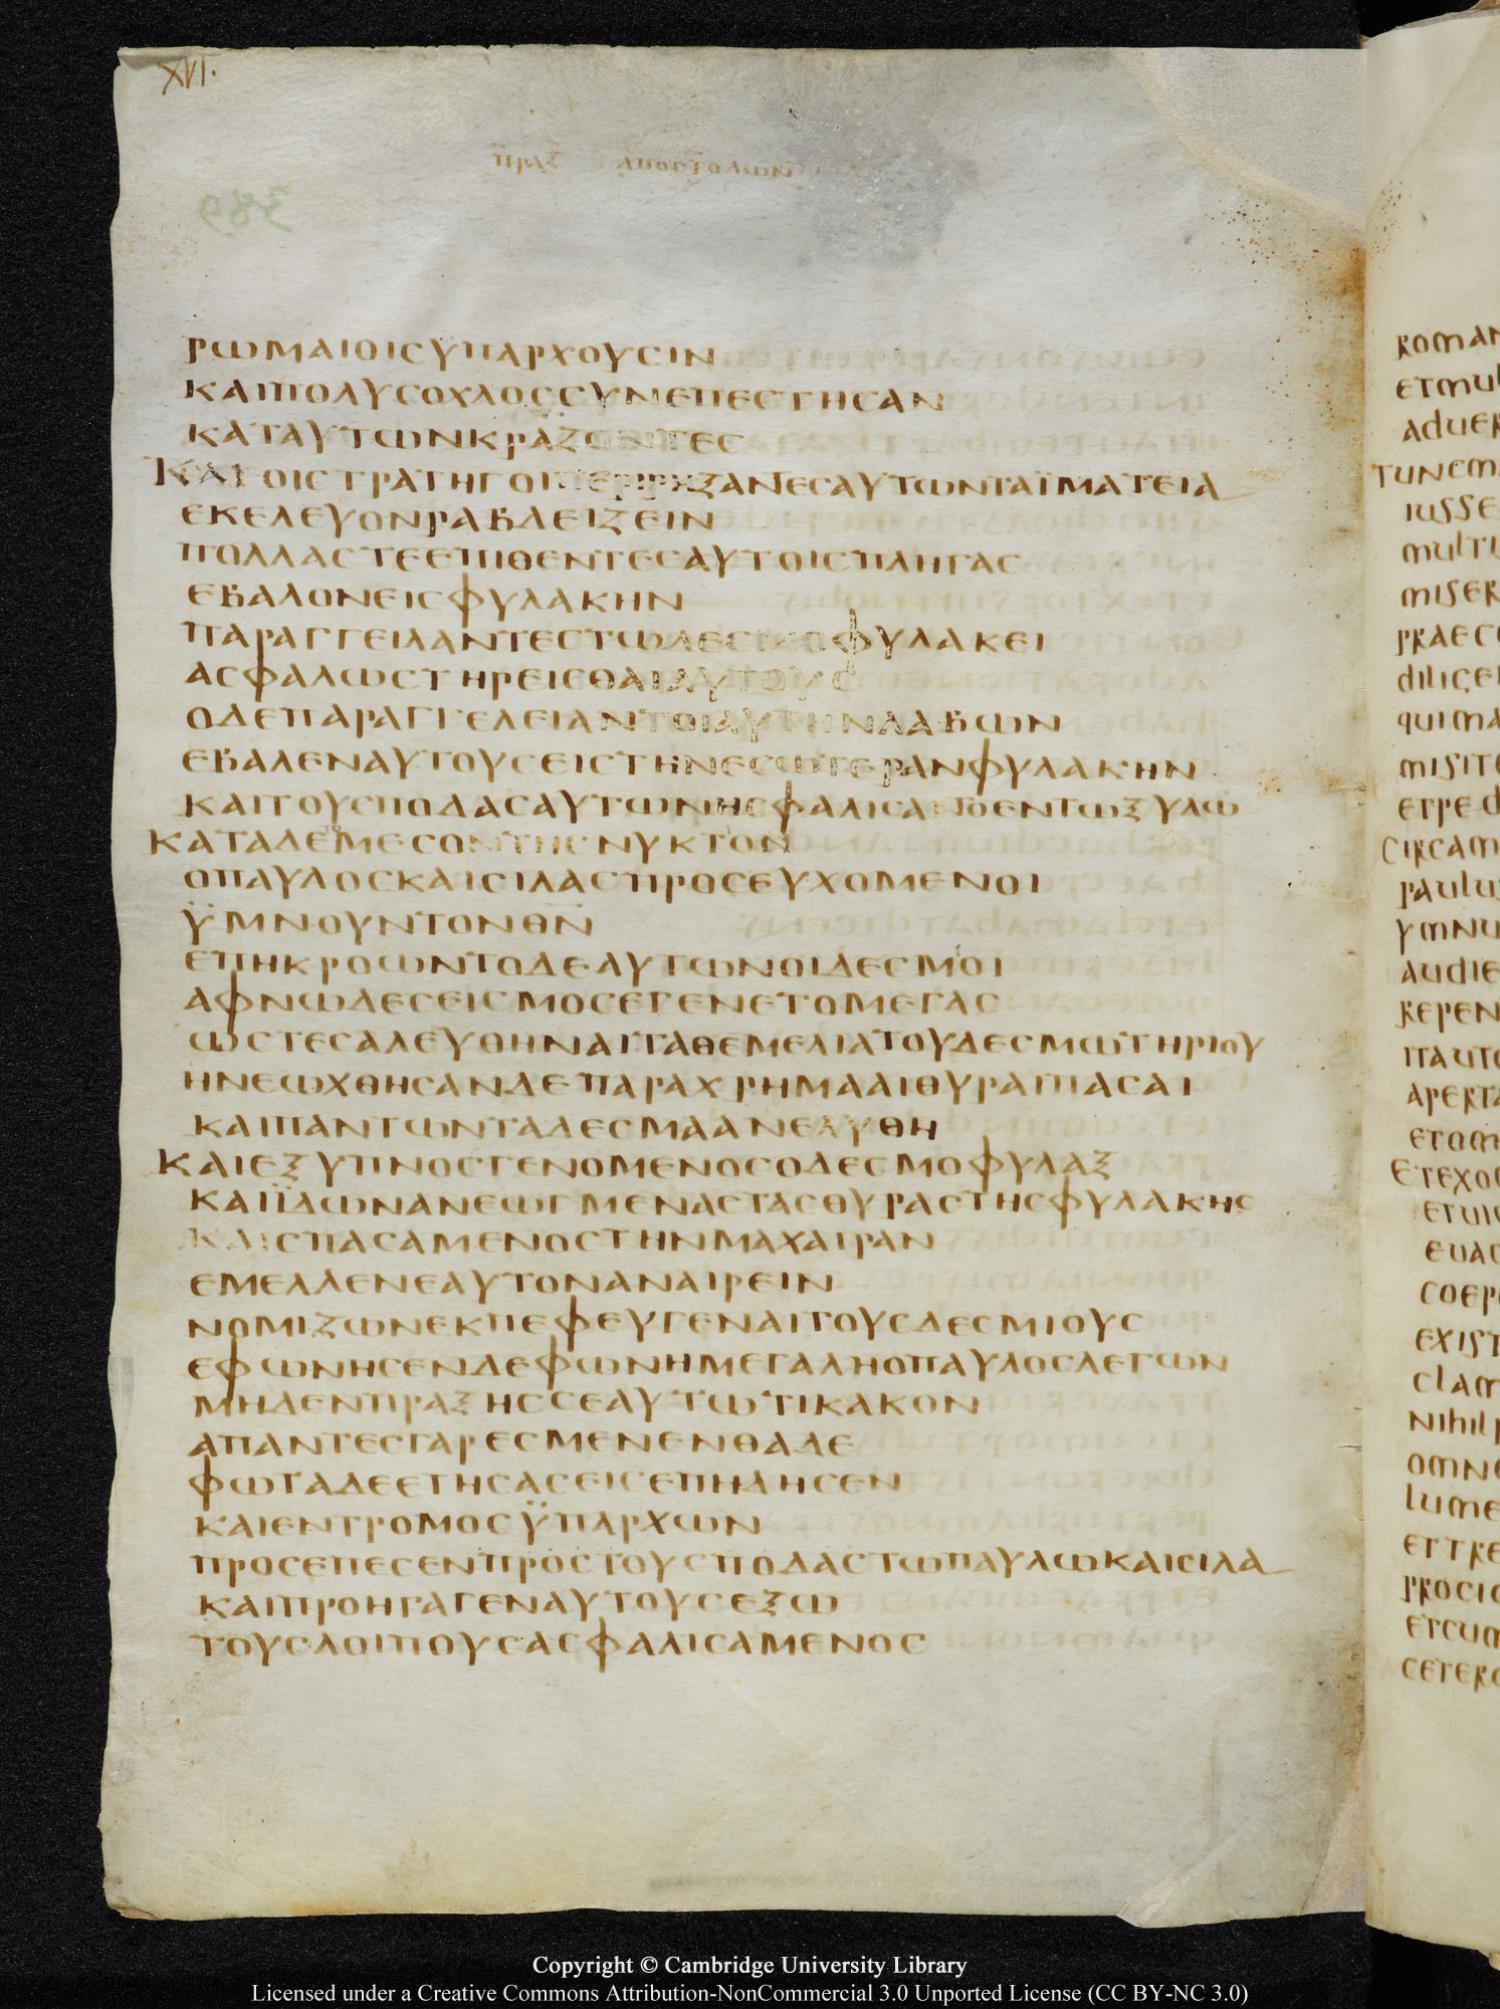 XVI.
πραξ αποστολων
389
ΡΩΜΑΙΟΙϹΥΠΑΡΧΟΥϹΙΝ
ΚΑΙΠΟΛΥϹΟΧΛΟϹϹΥΝΕΠΕϹΤΗϹΑΝ
ΚΑΤΑΥΤΩΝΚΡΑΖΟΝΤΕϹ
ΚΑΙΟΙϹΤΡΑΤΗΓΟΙΠΕΡΙΡΗΞΑΝΤΕϹΑΥΤΩΝΤΑΪΜΑΤΕΙΑ
ΕΚΕΛΕΥΟΝΡΑΒΔΕΙΖΕΙΝ
ΠΟΛΛΑϹΤΕΕΠΙΘΕΝΤΕϹΑΥΤΟΙϹΠΛΗΓΑϹ
ΕΒΑΛΟΝΕΙϹΦΥΛΑΚΗΝ
ΠΑΡΑΓΓΕΙΛΑΝΤΕϹΤΩΔΕϹΜΟΦΥΛΑΚΕΙ
ΑϹΦΑΛΩϹΤΗΡΕΙϹΘΑΙΑΥΤΟΥϹ
ΟΔΕΠΑΡΑΓΓΕΛΕΙΑΝΤΟΙΑΥΤΗΝΛΑΒΩΝ
ΕΒΑΛΕΝΑΥΤΟΥϹΕΙϹΤΗΝΕϹΩΤΕΡΑΝΦΥΛΑΚΗΝ
ΚΑΙΤΟΥϹΠΟΔΑϹΑΥΤΩΝΗϹΦΑΛΙϹΑΝΤΟΕΝΤΩΞΥΛΩ
ΚΑΤΑΔΕΜΕϹΟΝΤΗϹΝΥΚΤΟΝ
ΟΠΑΥΛΟϹΚΑΙϹΙΛΑϹΠΡΟϹΕΥΧΟΜΕΝΟΙ
ΫΜΝΟΥΝΤΟΝΘ̅Ν̅
ΕΠΗΚΡΟΩΝΤΟΔΕΑΥΤΩΝΟΙΔΕϹΜΟΙ
ΑΦΝΩΔΕϹΕΙϹΜΟϹΕΓΕΝΕΤΟΜΕΓΑϹ
ΩϹΤΕϹΑΛΕΥΘΗΝΑΙΤΑΘΕΜΕΛΙΑΤΟΥΔΕϹΜΩΤΗΡΙΟΥ
ΗΝΕΩΧΘΗϹΑΝΔΕΠΑΡΑΧΡΗΜΑΑΙΘΥΡΑΙΠΑϹΑΙ
ΚΑΙΠΑΝΤΩΝΤΑΔΕϹΜΑΑΝΕΛΥΘΗ
ΚΑΙΕΞΥΠΝΟϹΓΕΝΟΜΕΝΟϹΟΔΕϹΜΟΦΥΛΑΞ
ΚΑΙΪΔΩΝΑΝΕΩΓΜΕΝΑϹΤΑϹΘΥΡΑϹΤΗϹΦΥΛΑΚΗϹ
ΚΑΙϹΠΑϹΑΜΕΝΟϹΤΗΝΜΑΧΑΙΡΑΝ
ΕΜΕΛΛΕΝΕΑΥΤΟΝΑΝΑΙΡΕΙΝ
ΝΟΜΙΖΩΝΕΚΠΕΦΕΥΓΕΝΑΙΤΟΥϹΔΕϹΜΙΟΥϹ
ΕΦΩΝΗϹΕΝΔΕΦΩΝΗΜΕΓΑΛΗΟΠΑΥΛΟϹΛΕΓΩΝ
ΜΗΔΕΝΠΡΑΞΗϹϹΕΑΥΤΩΤΙΚΑΚΟΝ
ΑΠΑΝΤΕϹΓΑΡΕϹΜΕΝΕΝΘΑΔΕ
ΦΩΤΑΔΕΕΤΗϹΑϹΕΙϹΕΠΗΔΗϹΕΝ
ΚΑΙΕΝΤΡΟΜΟϹΫΠΑΡΧΩΝ
ΠΡΟϹΕΠΕϹΕΝΠΡΟϹΤΟΥϹΠΟΔΑϹΤΩΠΑΥΛΩΚΑΙϹΙΛΑ
ΚΑΙΠΡΟΗΓΑΓΕΝΑΥΤΟΥϹΕΞΩ
ΤΟΥϹΛΟΙΠΟΥϹΑϹΦΑΛΙϹΑΜΕΝΟϹ
Copyright © Cambridge University Library
Licensed under a Creative Commons Attribution-NonCommercial 3.0 Unported License (CC BY-NC 3.0)